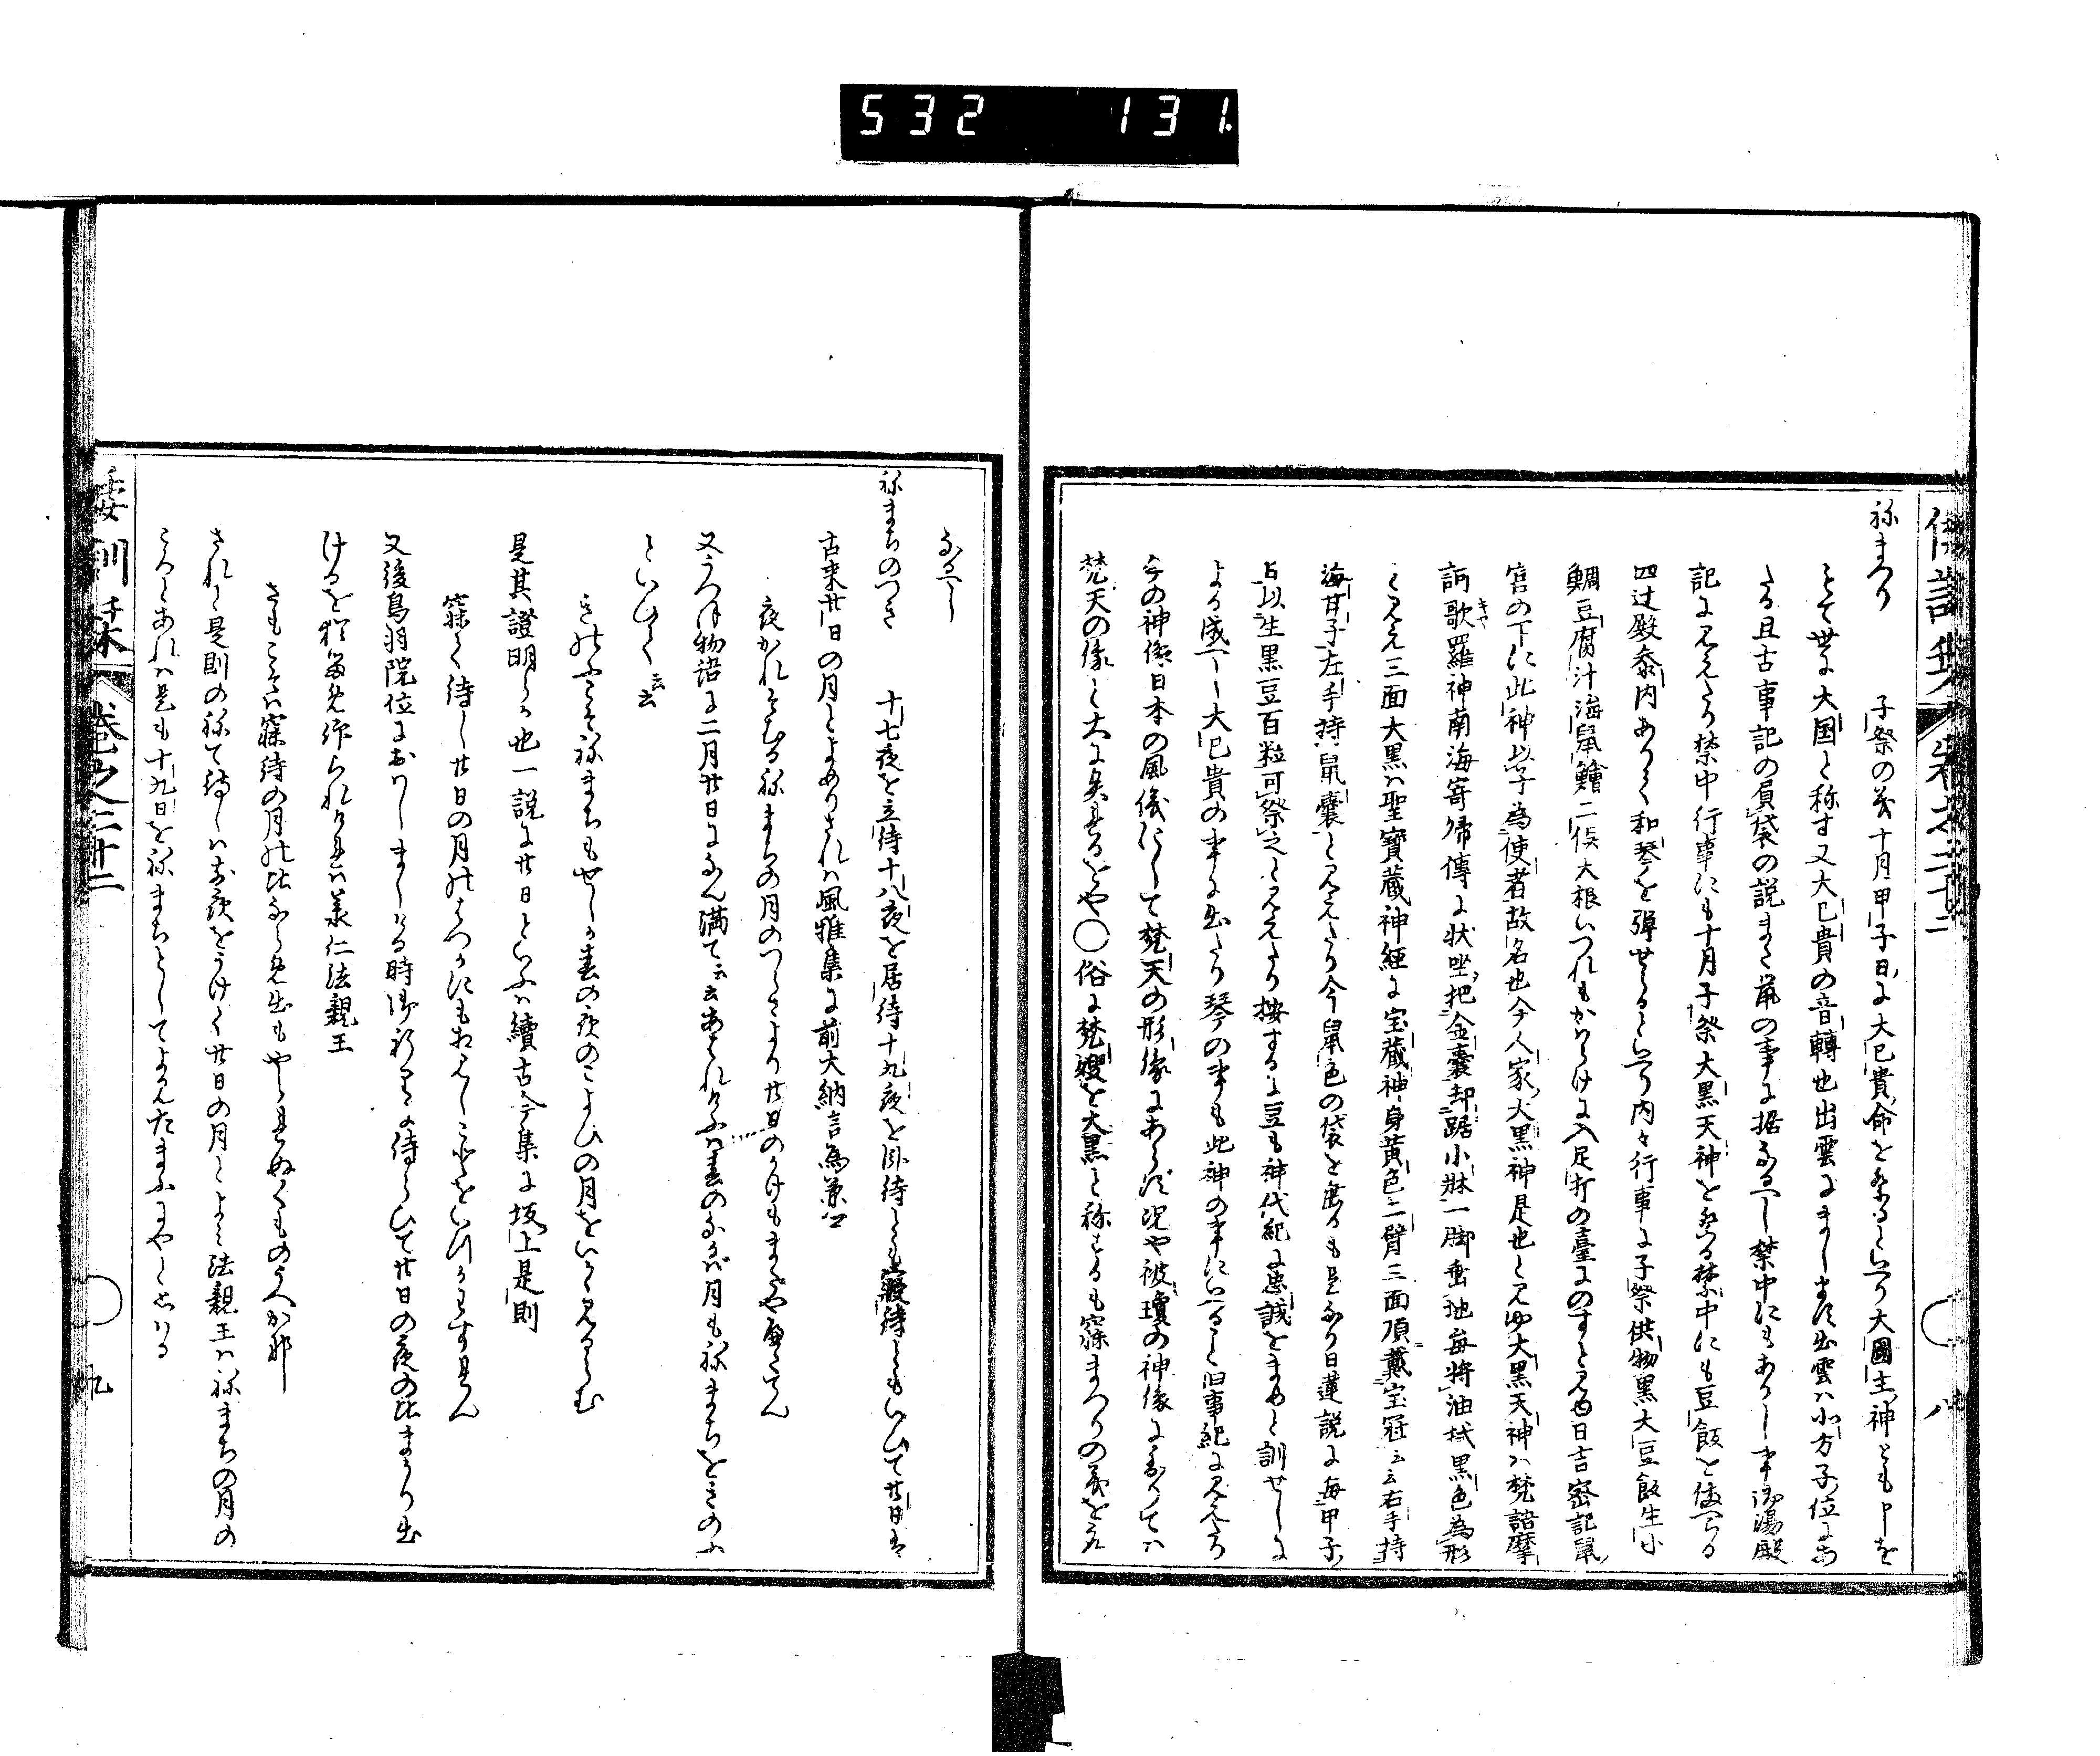 532 131
倭訓栞 巻之二十二 八
祢まつり 子祭の義十月甲子日に大己貴命を祭るといへり大國主神とも申を
もて世に大国と称す又大己貴の音轉也出雲にまします出雲ハ北方子位にあ
たる且古事記の屓袋の説また鼠の事に据なるへし禁中にもありし事御湯殿
記に見えたり禁中行事にも十月子祭大黒天神を祭る禁中にも豆飯を備へらる
四辻殿参内ありて和琴を弾せらるといへり内々行事に子祭供物黒大豆飯生小
鯛豆腐汁海鼠鱠二俣大根いつれもかはらけに入足打の臺にのすと見ゆ日吉密記鼠
宮の下に此神以子為使者故名也今人家大黒神是也と見ゆ大黒天神ハ梵語摩
訶歌羅神南海寄帰傳に状坐把金嚢却踞小牀一脚垂地毎将油拭黒色為形
と見え三面大黒ハ聖寶蔵神経に宝蔵神身黄色二臂三面頂戴宝冠云云右手持
海甘子左手持鼠嚢と見えたり今鼠色の袋を画るも是なり日蓮説に毎甲子
日以生黒豆百粒可祭之と見えたり按するに豆も神代紀に忠誠をまめと訓せしに
よる成へし大己貴の事に出たり琴の事も此神の事にいへること旧事紀に見えたり
今の神像日本の風儀にして梵天の形像にあらす况や被瓊の神像に至りてハ
梵天の像と大に異なるをや○俗に梵嫂を大黒と称するも寐まつりの義を又
なるへし
祢まちのつき 十七夜を立待十八夜を居待十九夜を臥待とも寝待ともいひて廿日は
古来廿日の月とよめりされハ風雅集に前大納言為兼
夜かれそむる祢まちの月のつらさより廿日のかけもまたやへたてん
又うつほ物語に二月廿日になん満て云云あはれけふハ春のなかば月も祢まちをきのふ
といひて云云
きのふこそ祢まちもせしか春の夜のこよひの月をいかゝ見るらむ
是其證明らか也一説に廿日といふハ續古今集に坂上是則
寐て待し廿日の月のはつかにもあひしことをいつかわすれん
又後鳥羽院位におハしましける時御祈に待らひて廿日の夜の比まかり出
けるを猶留め仰られけれは義仁法親王
さもこそハ寐待の月の比ならめ出もやられぬくものうへか那
されと是則の祢て待しハ前夜をうけて廿日の月とよみ法親王ハ祢まちの月の
ころとあれハ是も十九日を祢まちとしてよみたまふにやと思はる
倭訓栞 巻之二十二 九